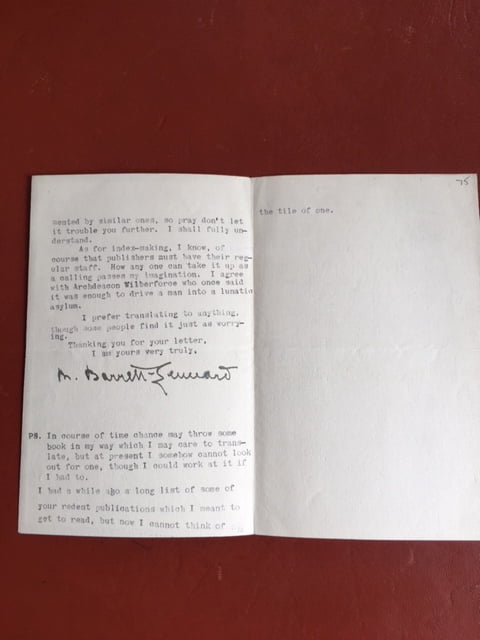 mented by similar ones, so pray don't let
it trouble you further. I shall fully un-
derstand.
As for index-making, I know, of
course that publishers must have their reg-
ular staff. How any one can take it up as
a calling passes my imagination. I agree
with Archdeacon Wilberforce who once said
it was enough to drive a man into a lunatic
asylum.
I prefer translating to anything,
though some people find it just as worry-
ing.
Thanking you for your letter,
I am yours very truly,
M. Barrett-Lennard
PS. In course of time chance may throw some
book in my way which I may care to trans-
late, but at present I somehow cannot look
out for one, though I could work at it if
I had to.
I had a while ago a long list of some of
your redent publications which I meant to
get to read, but now I cannot think of
75
the tile of one.